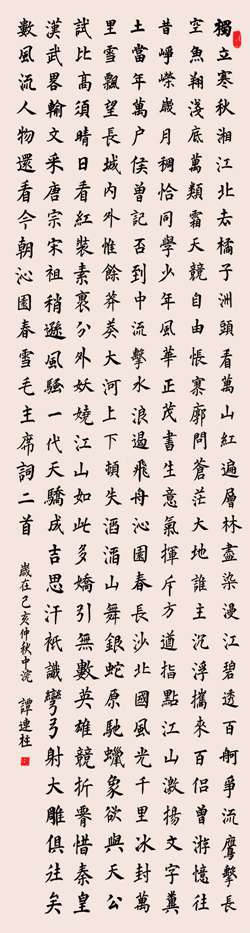 獨立寒秋湘江北去橘子洲頭看萬山紅遍層林盡染漫江碧透百舸爭流鷹擊長
空魚翔淺底萬類霜天競自由悵寥廓問蒼茫大地誰主沉浮攜來百侶曾游憶往
昔崢嶸歲月稠恰同學少年風華正茂書生意氣揮斥方遒指點江山激揚文字糞
土當年萬戶侯曾記否到中流擊水浪遏飛舟沁園春長沙北國風光千里冰封萬
里雪飄望長城內外惟餘莽莽大河上下頓失滔滔山舞銀蛇原馳蠟象欲與天公
試比高須晴日看紅裝素裹分外妖嬈江山如此多嬌引無數英雄競折腰惜秦皇
漢武畧輸文采唐宗宋祖稍遜風騷一代天驕成吉思汗祇識彎弓射大雕俱往矣
數風流人物還看今朝沁園春雪毛主席詞二首
歲在己亥仲秋中浣 譚連柱